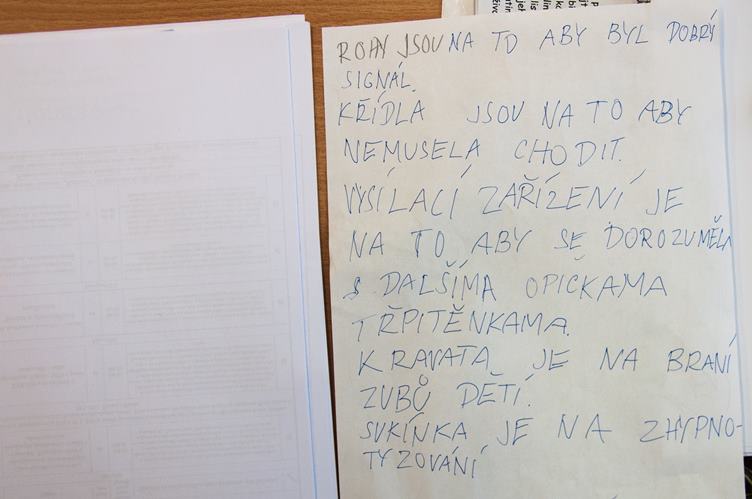 ROHY JSOU NA TO ABY BYL DOBRÝ
SIGNÁL.
KŘÍDLA JSOU NA TO ABY
NEMUSELA CHODIT.
VYSÍLACÍ ZAŘÍZENÍ JE
NA TO ABY SE DOROZUMĚLA
S DALŠÍMA OPIČKAMA
TŘPITĚNKAMA.
KRAVATA JE NA BRANÍ
ZUBŮ DĚTÍ.
SUKÍNKA JE NA ZHYPNO-
TYZOVÁNÍ